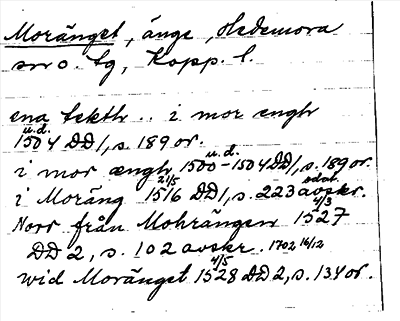 Moränget, änge, Hedemora
sn o. tg, Kopp. l.
ena tekth .. i mor ængh
u.d.
1504 DD 1, s. 189 or.
u.d.
i mor ængh 1500-1504 DD 1, s. 189 or.
i Moräng 21/5 1516 DD 1, s. 223 odat. avskr.
Norr från Mohrängen 4/3 1527
DD 2, s. 102 avskr. 1702 16/12
wid Moränget 4/5 1528 DD 2, s. 134 or.